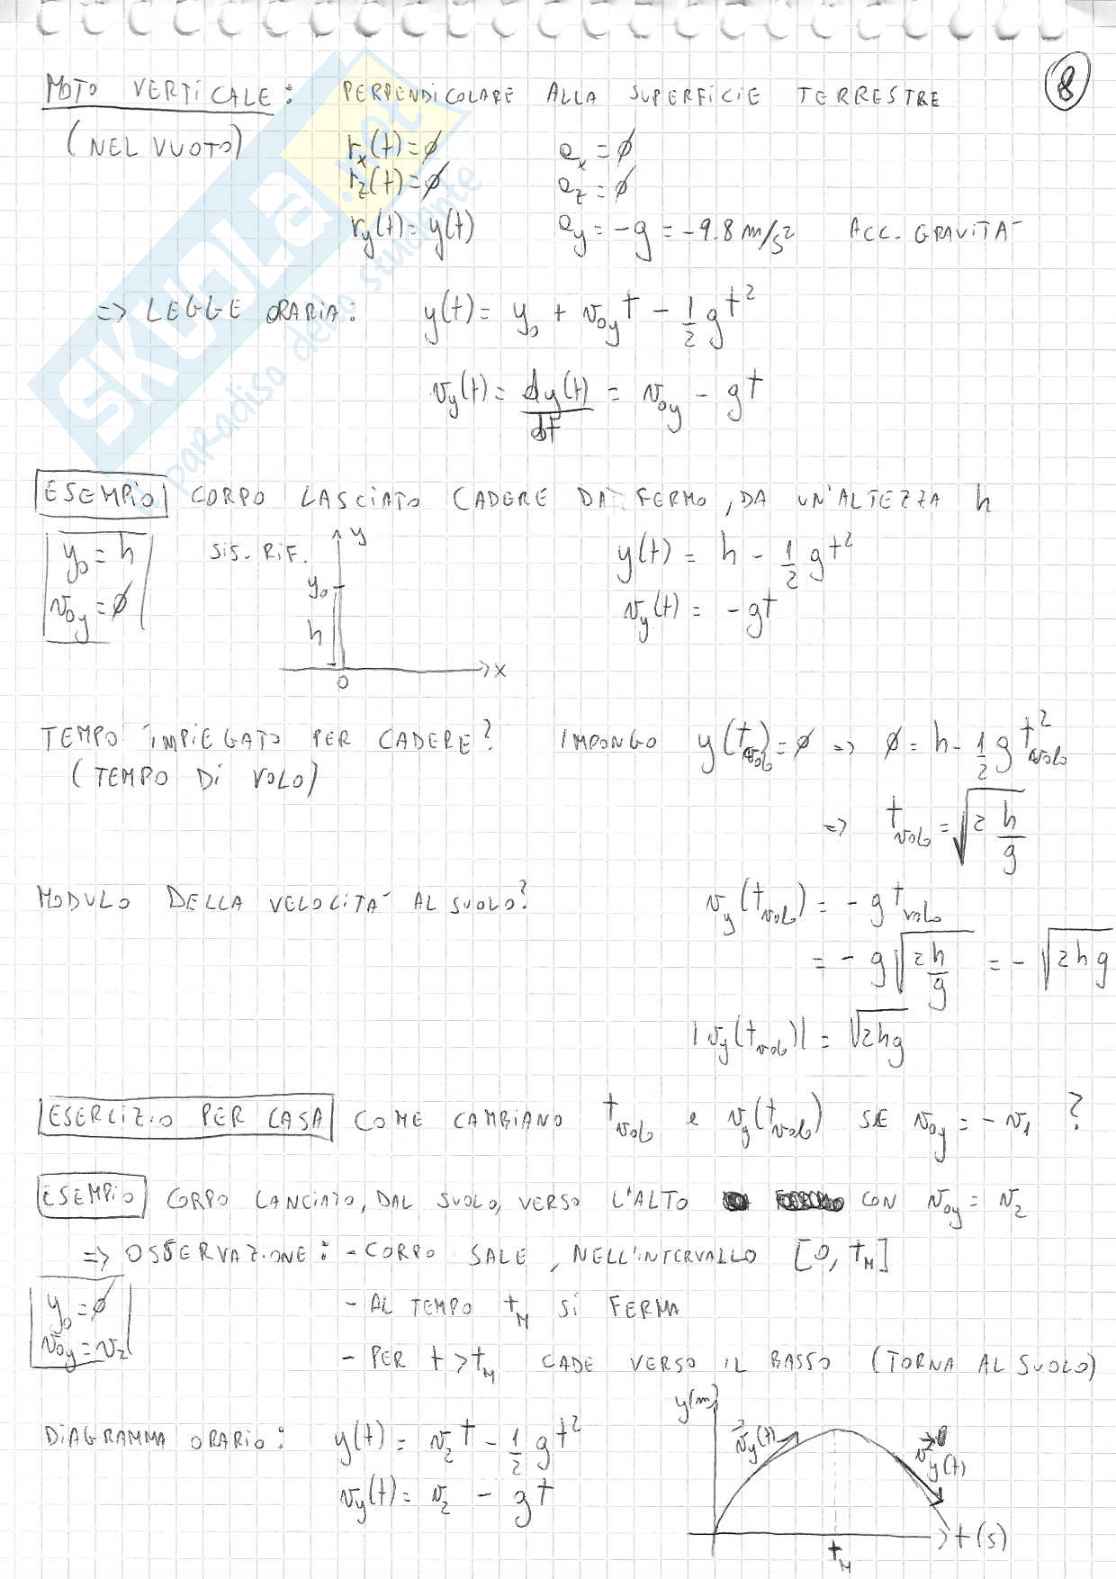 8
MOTO VERTICALE: PERPENDICOLARE ALLA SUPERFICIE TERRESTRE
(NEL VUOTO) r_x(t)=∅ a_x=∅
r_z(t)=∅ a_z=∅
r_y(t)=y(t) a_y=-g=-9.8 m/s² ACC. GRAVITA'
=> LEGGE ORARIA: y(t)= y_0 + v_0y t - 1/2 g t²
v_y(t)= dy(t)/dt = v_0y - gt
SKUOLA.net
paradiso dello studente
ESEMPIO CORPO LASCIATO CADERE DA FERMO, DA UN'ALTEZZA h
y_0=h SIS. RIF. y y(t)= h - 1/2 g t²
v_0y=∅ y_0 v_y(t)= -gt
h
0 x
TEMPO IMPIEGATO PER CADERE? IMPONGO y(t_volo)=∅ => ∅=h-1/2 g t²_volo
(TEMPO DI VOLO)
=> t_volo=√(2 h/g)
MODULO DELLA VELOCITA' AL SUOLO? v_y(t_volo)= -g t_volo
= -g√(2h/g) = -√(2hg)
|v_y(t_volo)|= √(2hg)
ESERCIZIO PER CASA COME CAMBIANO t_volo e v_y(t_volo) SE v_0y=-v_1 ?
ESEMPIO CORPO LANCIATO, DAL SUOLO, VERSO L'ALTO CON v_0y=v_2
=> OSSERVAZIONE: - CORPO SALE, NELL'INTERVALLO [0, t_M]
y_0=∅ - AL TEMPO t_M SI FERMA
v_0y=v_2 - PER t>t_M CADE VERSO IL BASSO (TORNA AL SUOLO)
DIAGRAMMA ORARIO: y(t)= v_2 t - 1/2 g t²
v_y(t)= v_2 - gt
y(m)
v_y(t) v_y(t)
t_M t(s)